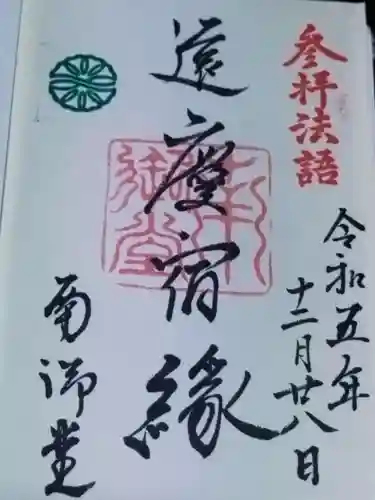 参拝法語
令和五年
十二月廿八日
遠慶宿縁
南御堂